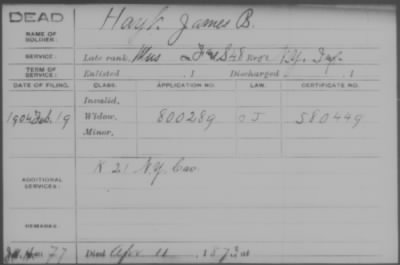 DEAD
NAME OF SOLDIER:
Hayt James B.
SERVICE:
Late rank, Mus 48 Regt Inf.
TERM OF SERVICE:
Enlisted , 1 Discharged , 1
DATE OF FILING. CLASS. APPLICATION NO. LAW. CERTIFICATE NO.
Invalid.
1904 Feb. 19 Widow. 800289 580449
Minor.
ADDITIONAL SERVICES:
K 21 N.Y. Cav
REMARKS:
77 Died Apr 11 187